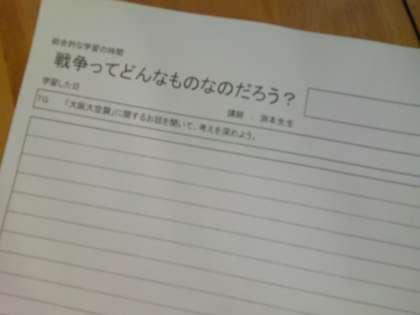 総合的な学習の時間
戦争ってどんなものなのだろう？
講師 : 浜本先生
学習した日
「大阪大空襲」に関するお話を聞いて、考えを深めよう。